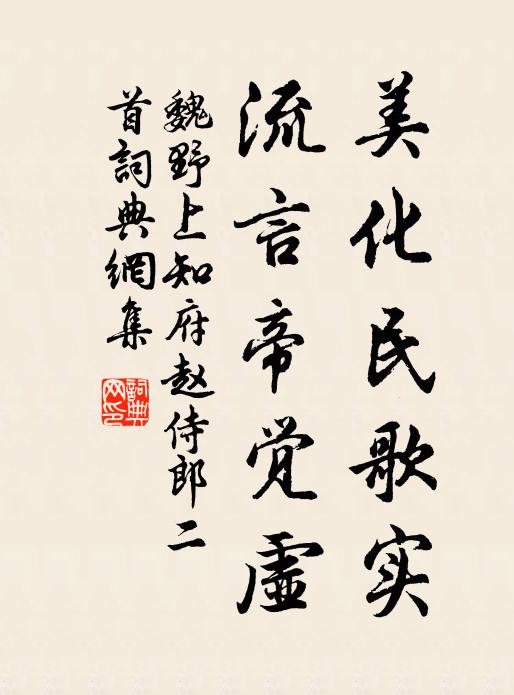 美化民歌实
流言帝觉虚
魏野上知府赵侍郎二
首詞典網集
詞典
网印